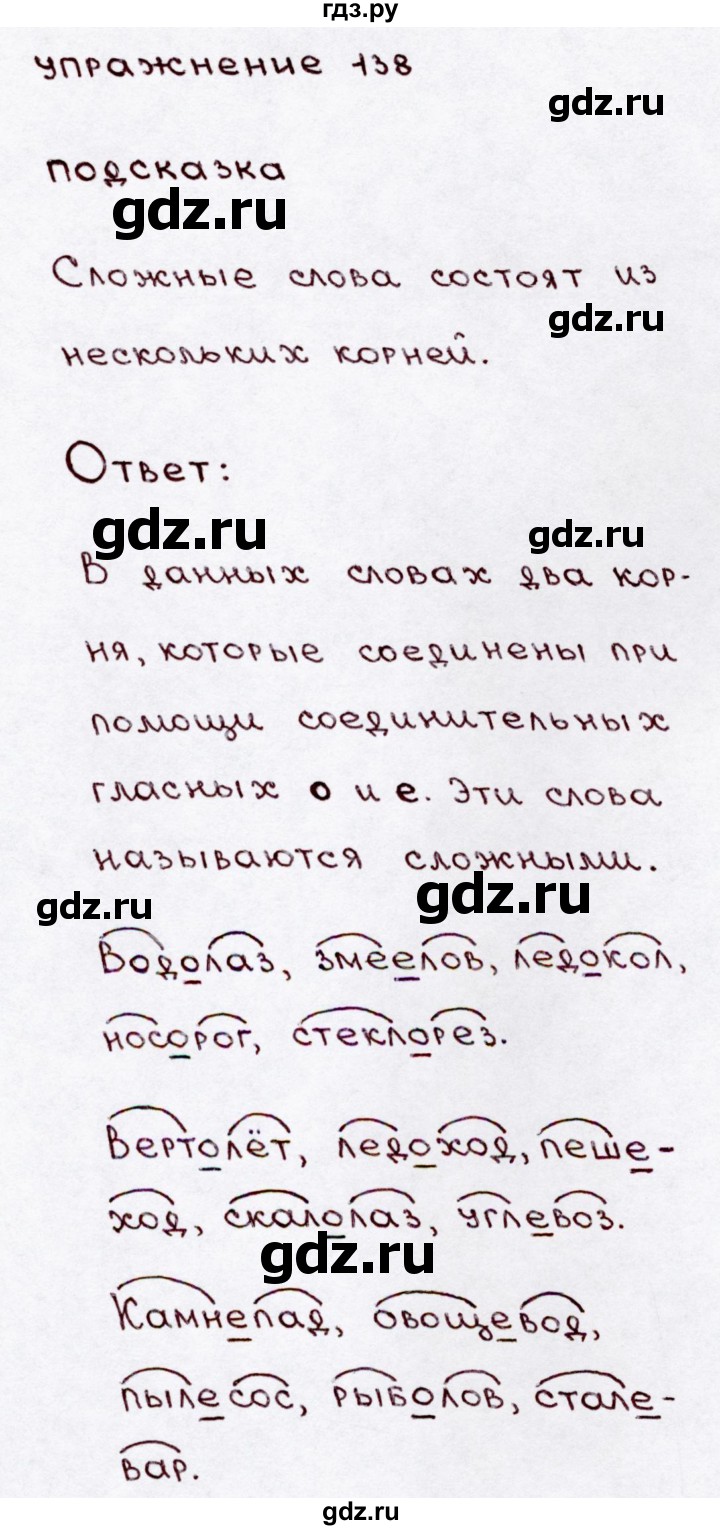 гдз.ру
упражнение 138
gdz.ru
подсказка
gdz.ru
Сложные слова состоят из
gdz.ru
нескольких корней.
Ответ:
gdz.ru
gdz.ru
В данных словах два кор-
ня, которые соединены при
помощи соединительных
гласных о и е. Эти слова
называются сложными.
gdz.ru
gdz.ru
Водолаз, змеелов, ледокол,
носорог, стеклорез.
Вертолёт, ледоход, пеше-
ход, скалолаз, углевоз.
gdz.ru
Камнепад, овощевод,
пылесос, рыболов, стале-
вар.
gdz.ru